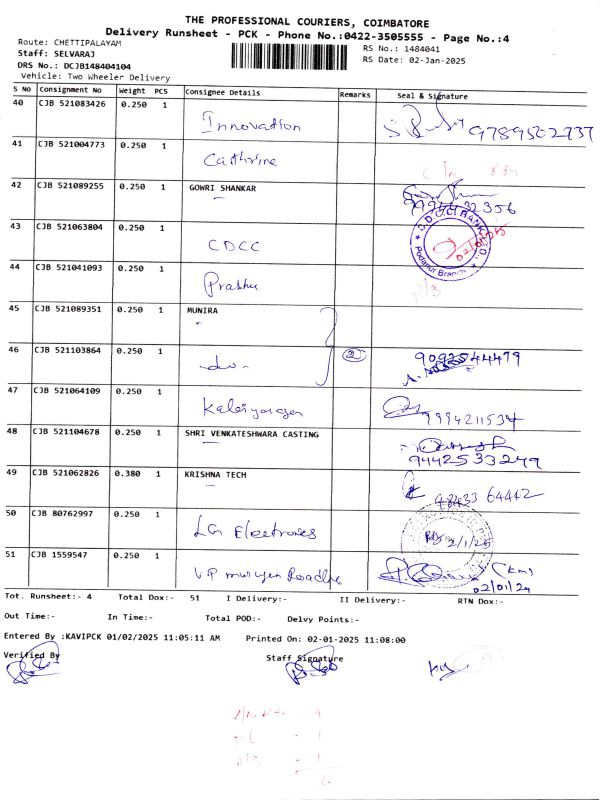 THE PROFESSIONAL COURIERS, COIMBATORE
Delivery Runsheet - PCK - Phone No.:0422-3505555 - Page No.:4
Route: CHETTIPALAYAM
RS No.: 1484041
Staff: SELVARAJ
RS Date: 02-Jan-2025
DRS No.: DCJB148404104
Vehicle: Two Wheeler Delivery
S No Consignment No Weight PCS Consignee Details Remarks Seal & Signature
40 CJB 521083426 0.250 1 Innovation 9789502737
41 CJB 521004773 0.250 1 Cathrine
42 CJB 521089255 0.250 1 GOWRI SHANKAR
43 CJB 521063804 0.250 1 CDCC Podanur Branch 02/01/25
44 CJB 521041093 0.250 1 Prabhu
45 CJB 521089351 0.250 1 MUNIRA
46 CJB 521103864 0.250 1 -do- 2 9092544479
47 CJB 521064109 0.250 1 9994211534
48 CJB 521104678 0.250 1 SHRI VENKATESHWARA CASTING 9442533249
49 CJB 521062826 0.380 1 KRISHNA TECH 98433 64442
50 CJB 80762997 0.250 1 LG Electronics 2/1/25
51 CJB 1559547 0.250 1 VP murugan (km)
02/01/25
Tot. Runsheet:- 4 Total Dox:- 51 I Delivery:- II Delivery:- RTN Dox:-
Out Time:- In Time:- Total POD:- Delvy Points:-
Entered By :KAVIPCK 01/02/2025 11:05:11 AM Printed On: 02-01-2025 11:08:00
Verified By Staff Signature